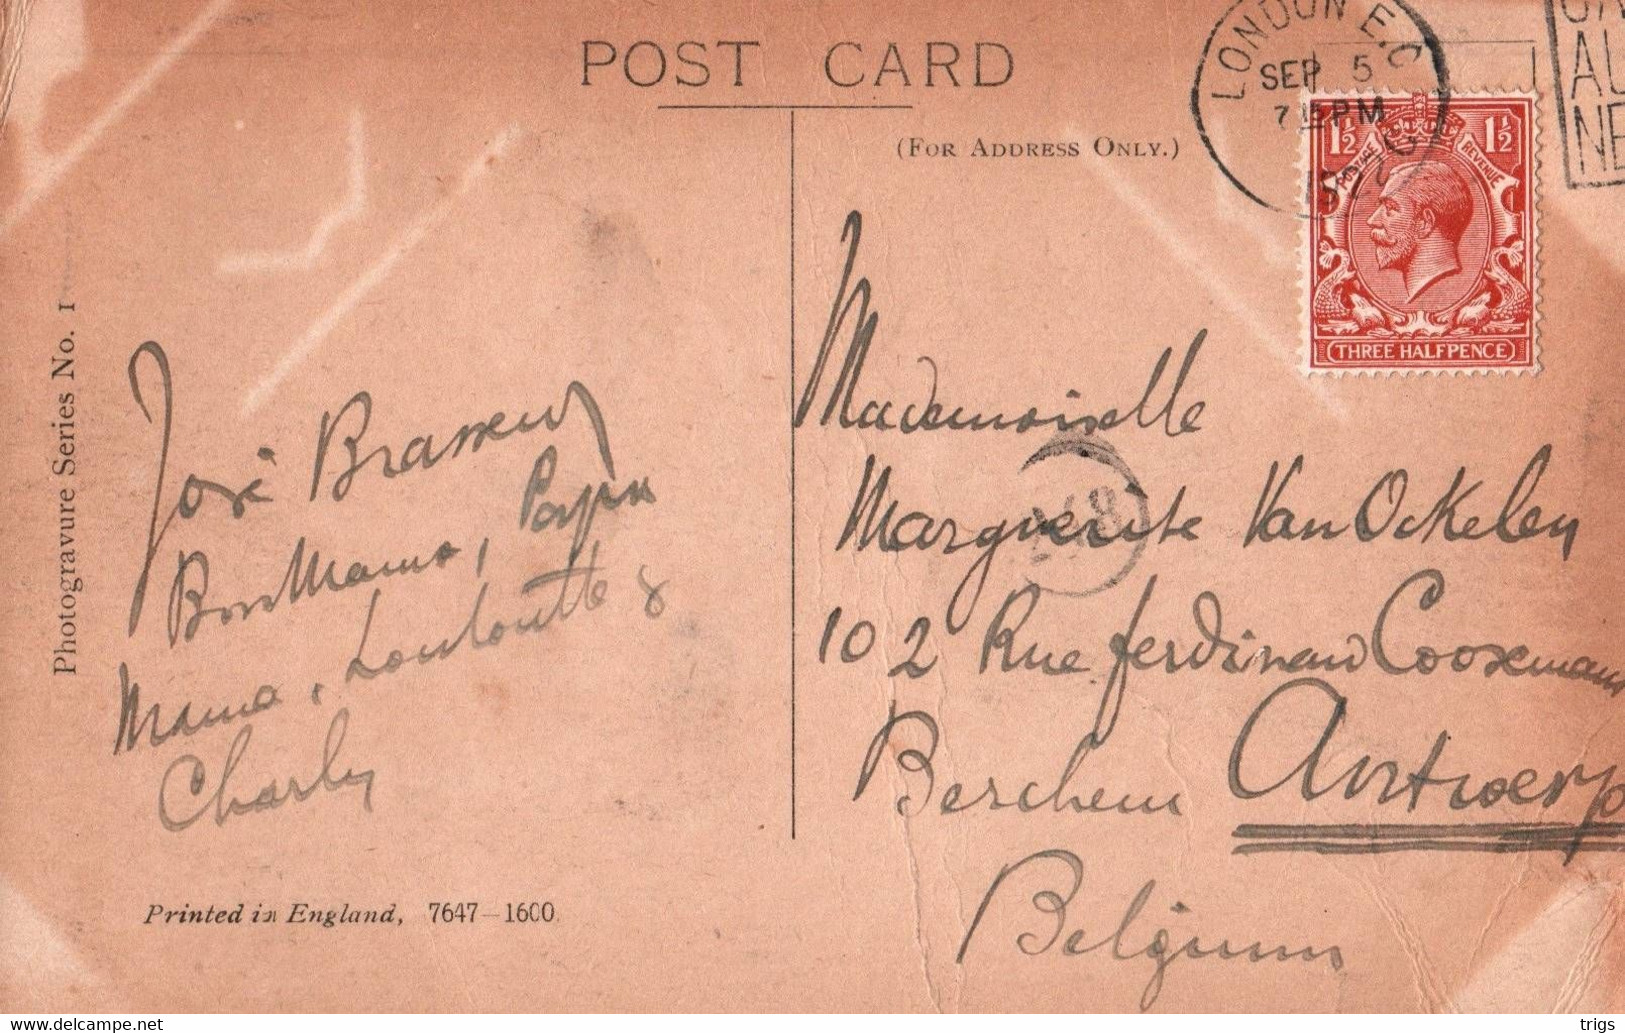 POST CARD
(FOR ADDRESS ONLY.)
LONDON E.C
SEP 5
7 15 PM
192
AU
NE
1½ 1½
POSTAGE REVENUE
THREE HALFPENCE
Photogravure Series No. 1
José Brasseur
Bon Mama, Papa
Mama, Louloutte &
Charly
Mademoiselle
Marguerite Van Ockelen
102 Rue Ferdinand Coosemans
Berchem Antwerp
Belgium
Printed in England, 7647-1600.
delcampe.net
trigs